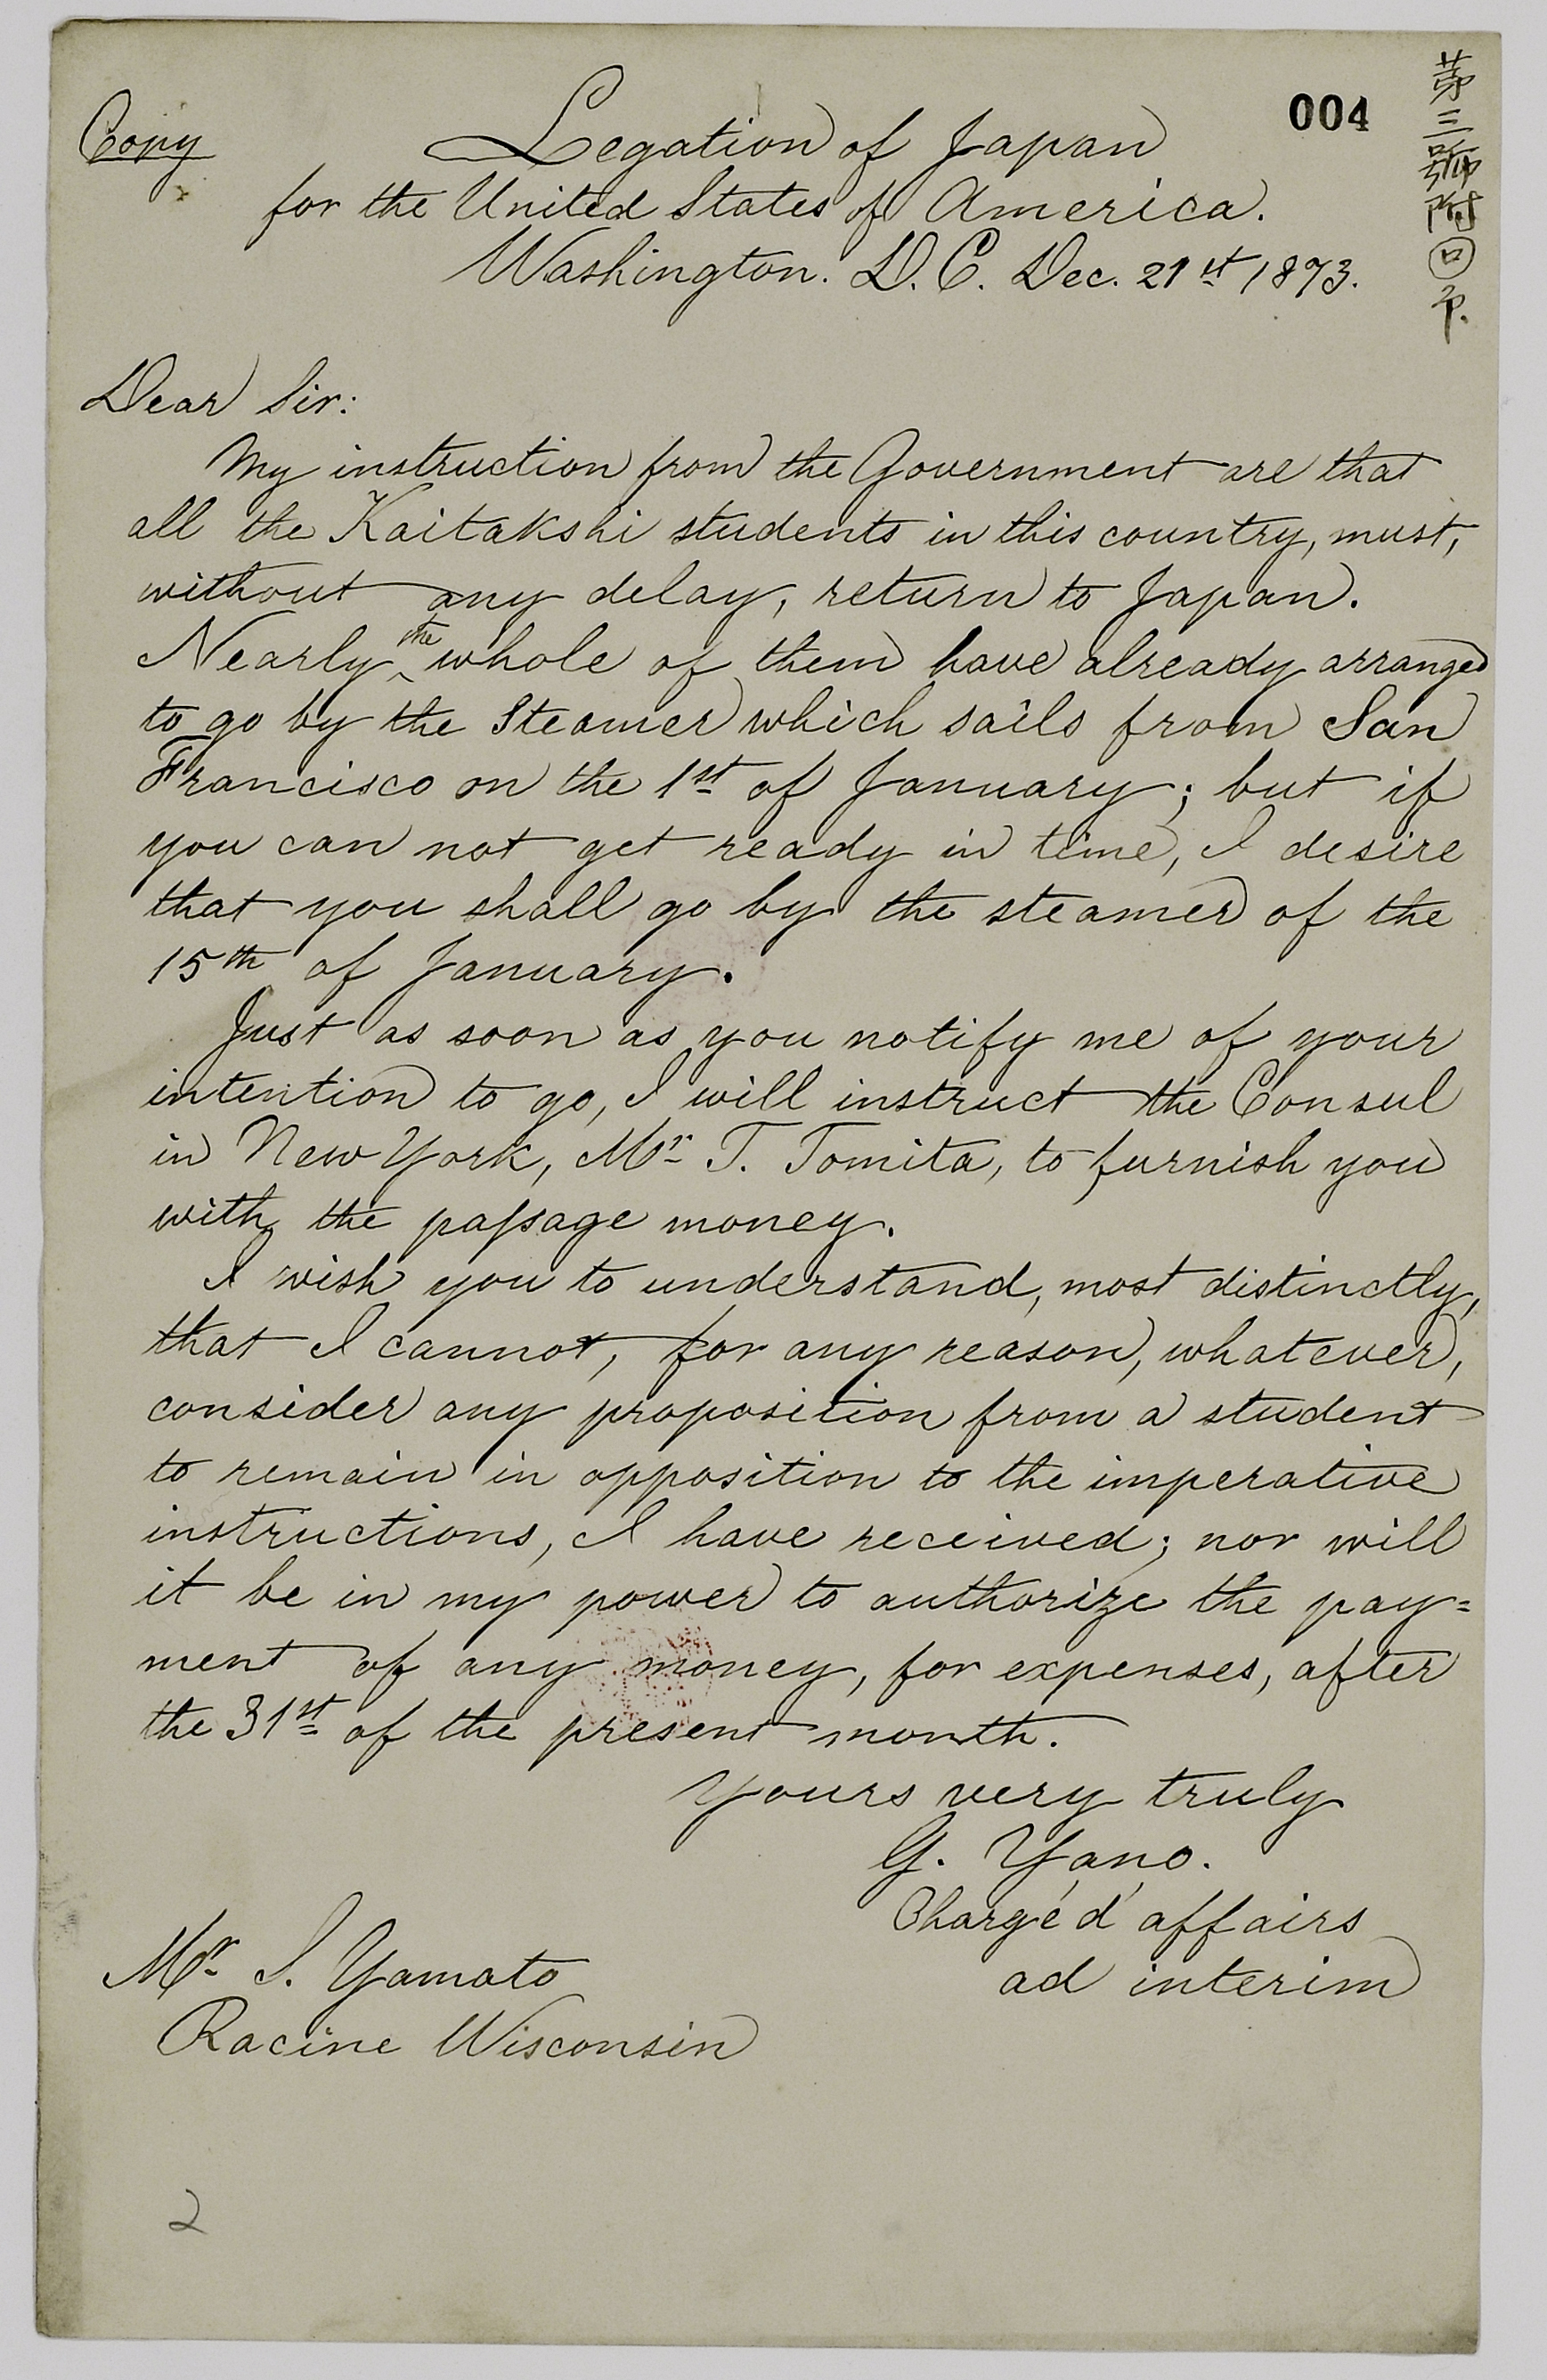 Copy
004
Legation of Japan
for the United States of America.
Washington. D.C. Dec. 21st 1873.
第三號附
Dear Sir:
My instruction from the Government are that
all the Kaitakshi students in this country, must,
without any delay, return to Japan.
Nearly the whole of them have already arranged
to go by the Steamer which sails from San
Francisco on the 1st of January; but if
you can not get ready in time, I desire
that you shall go by the steamer of the
15th of January.
Just as soon as you notify me of your
intention to go, I will instruct the Consul
in New York, Mr T. Tomita, to furnish you
with the paſsage money.
I wish you to understand, most distinctly,
that I cannot, for any reason, whatever,
consider any proposition from a student
to remain in opposition to the imperative
instructions, I have received; nor will
it be in my power to authorize the pay=
ment of any money, for expenses, after
the 31st of the present month.
Yours very truly
G. Yano.
Chargé d' affairs
ad interim
Mr S. Yamato
Racine Wisconsin
2